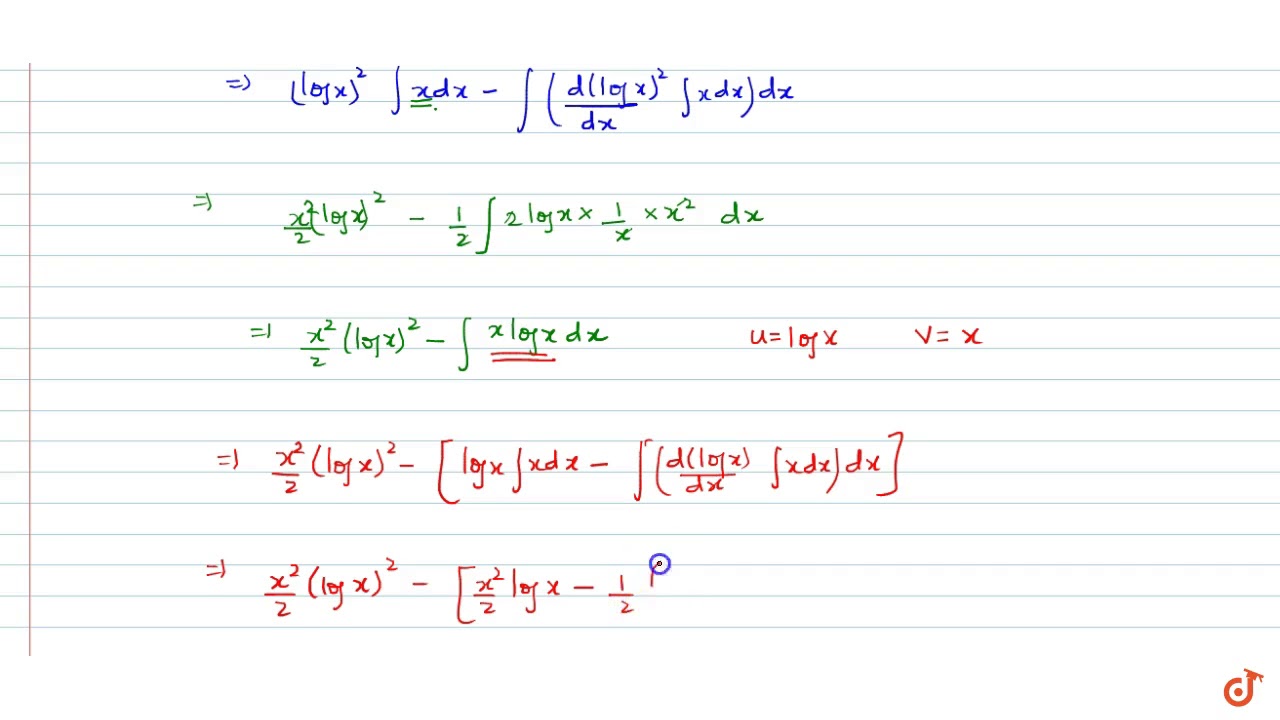 => (log x)² ∫ x dx − ∫ ( d(log x)²/dx ∫ x dx ) dx
=> x²/2 (log x)² − 1/2 ∫ 2 log x × 1/x × x² dx
=> x²/2 (log x)² − ∫ x log x dx u = log x v = x
=> x²/2 (log x)² − [ log x ∫ x dx − ∫ ( d(log x)/dx ∫ x dx ) dx ]
=> x²/2 (log x)² − [ x²/2 log x − 1/2